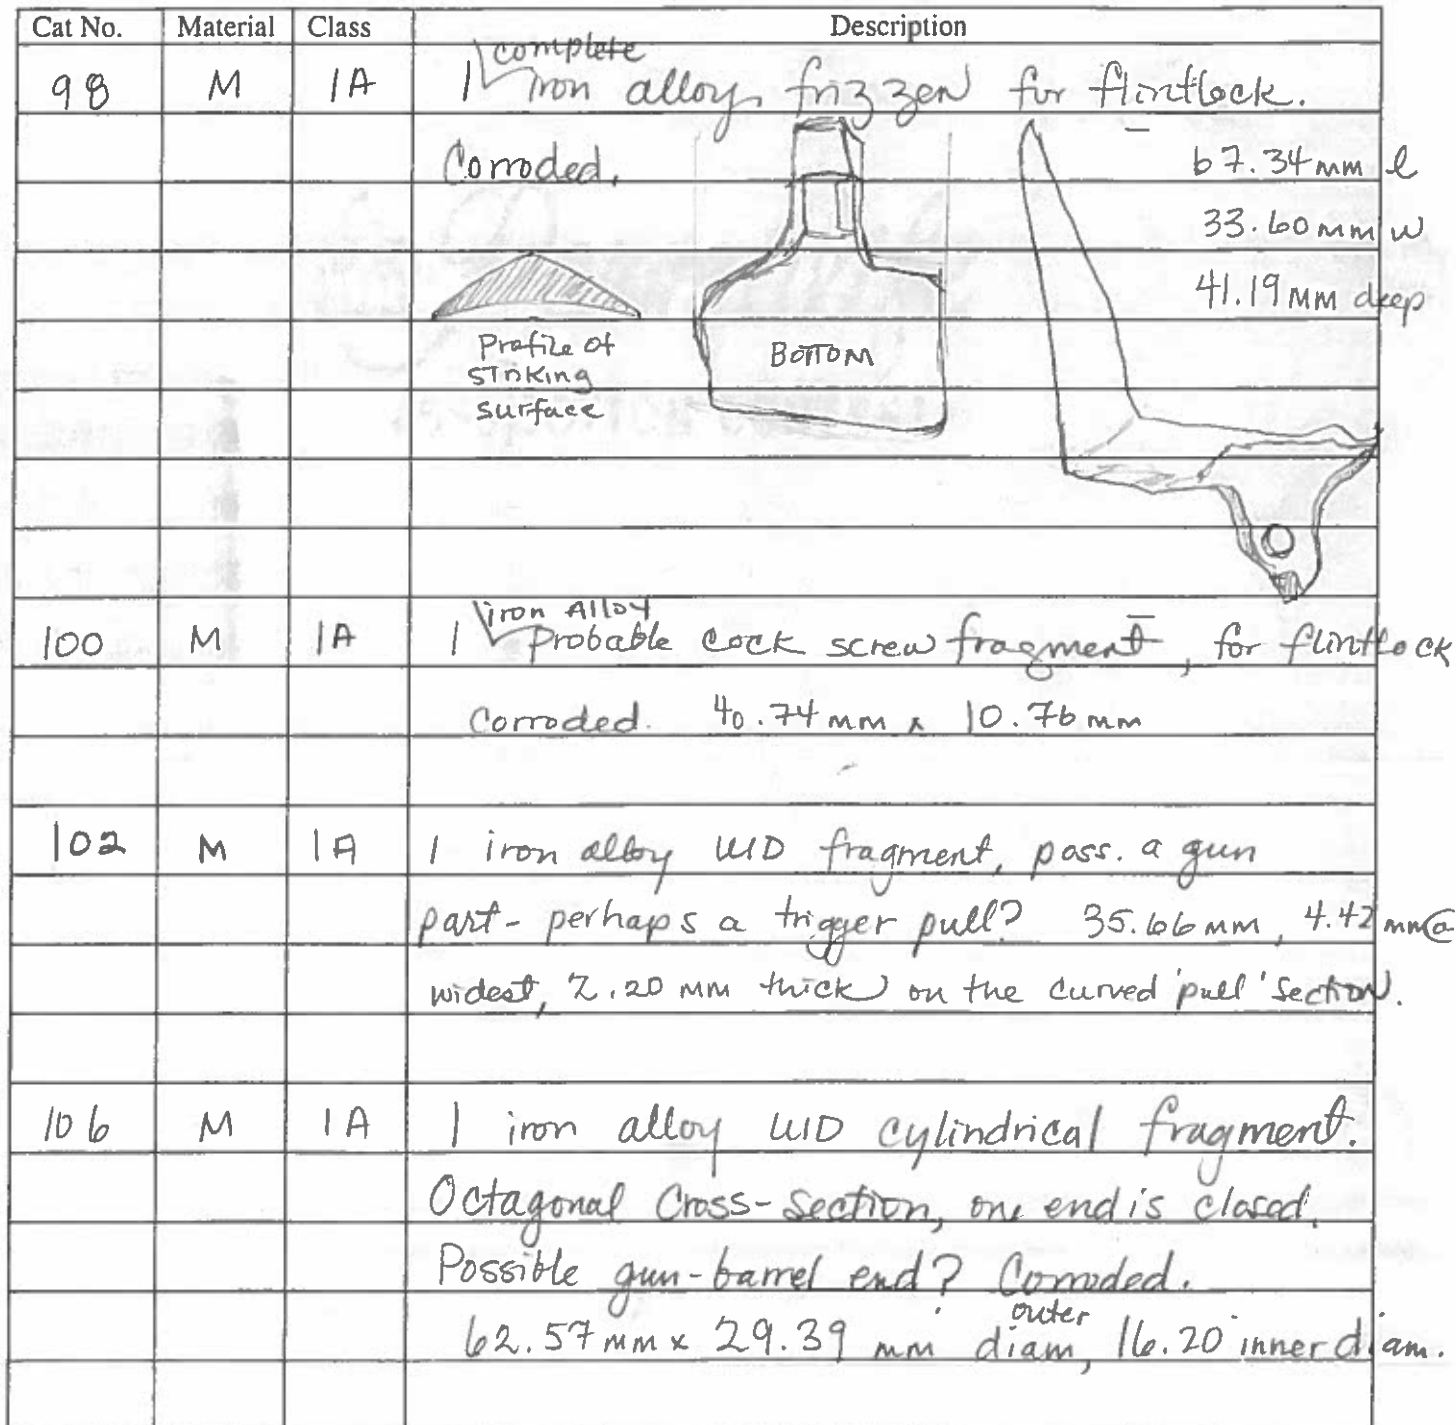 Cat No. Material Class Description
98 M 1A 1 complete iron alloy frizzen for flintlock.
Corroded. 67.34 mm l
33.60 mm w
41.19 mm deep
Profile of
striking
surface
BOTTOM
100 M 1A 1 iron Alloy Probable cock screw fragment, for flintlock
Corroded. 40.74 mm x 10.76 mm
102 M 1A 1 iron alloy UID fragment, poss. a gun
part - perhaps a trigger pull? 35.66 mm, 4.42 mm @
widest, 2.20 mm thick on the curved 'pull' section.
106 M 1A 1 iron alloy UID cylindrical fragment.
Octagonal Cross-section, one end is closed.
Possible gun-barrel end? Corroded.
62.57 mm x 29.39 mm outer diam, 16.20 inner diam.